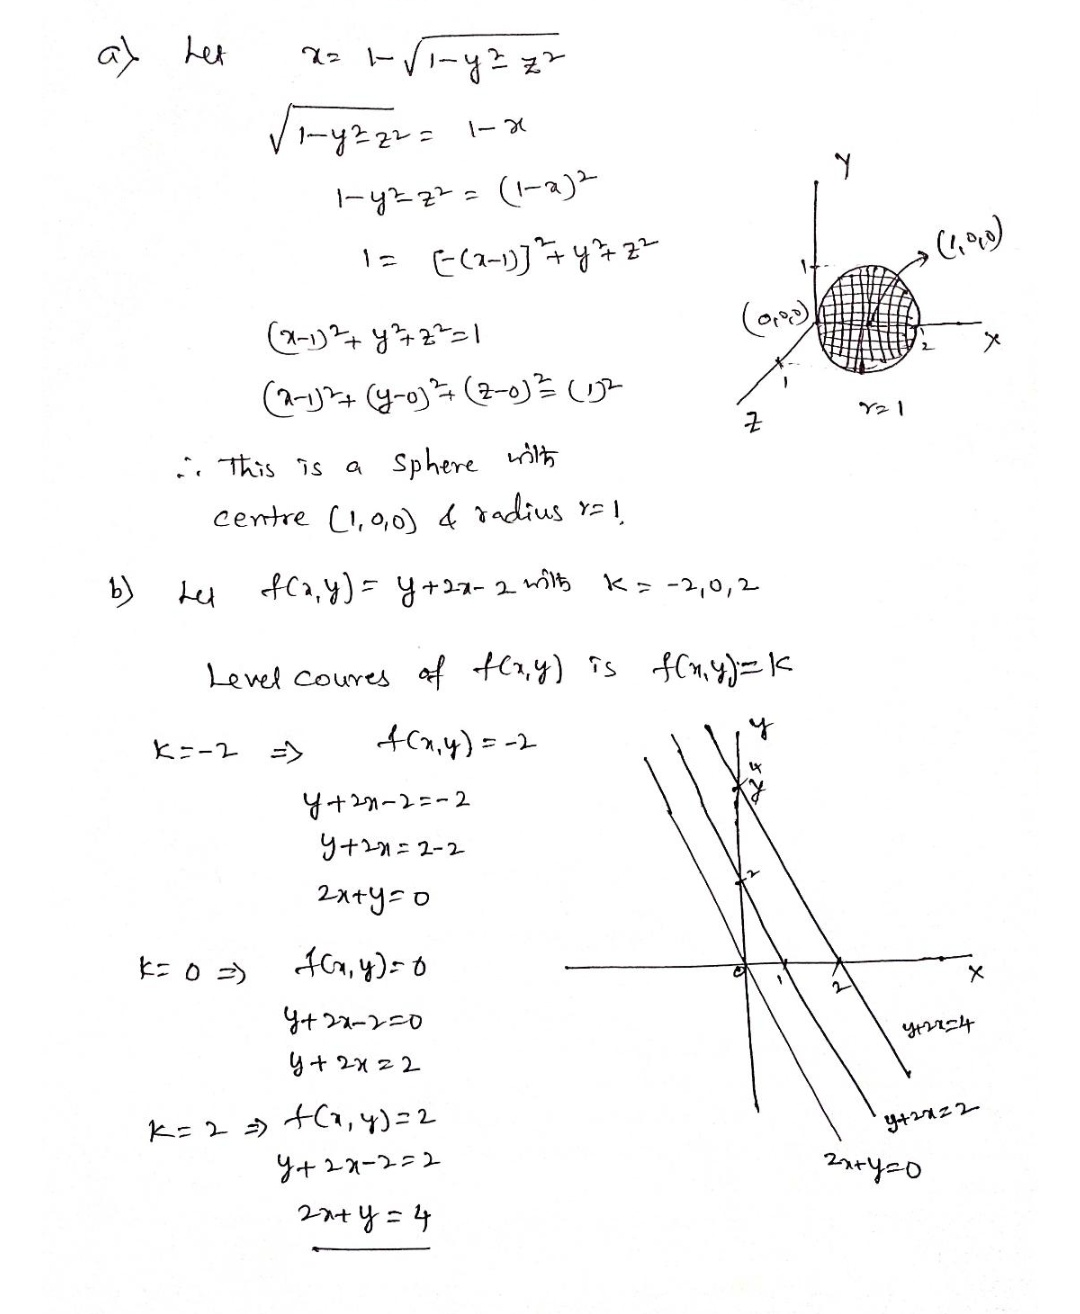 a) Let x = 1-√1-y²-z²
√1-y²-z² = 1-x
1-y²-z² = (1-x)²
1 = [-(x-1)]²+y²+z²
(x-1)²+y²+z²=1
(x-1)²+(y-0)²+(z-0)²=(1)²
∴ This is a sphere with
centre (1,0,0) & radius r=1.
Y
1
(1,0,0)
(0,0,0)
2
X
1
Z
r=1
b) Let f(x,y) = y+2x-2 with k = -2,0,2
Level courves of f(x,y) is f(x,y)=k
k=-2 ⇒ f(x,y)=-2
y+2x-2=-2
y+2x=2-2
2x+y=0
k=0 ⇒ f(x,y)=0
y+2x-2=0
y+2x=2
k=2 ⇒ f(x,y)=2
y+2x-2=2
2x+y=4
y
4
2
0
1
2
X
y+2x=4
y+2x=2
2x+y=0